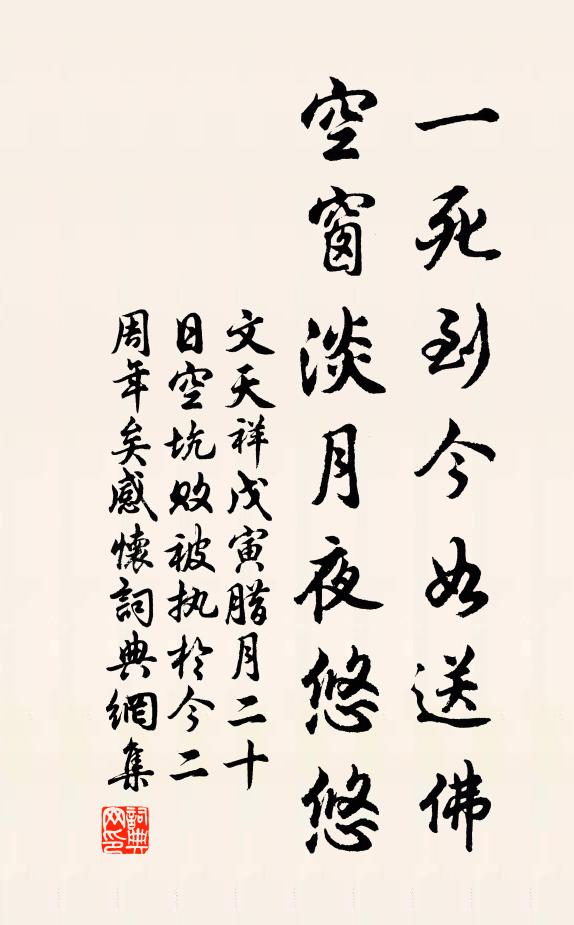 一死到今如送佛
空窗淡月夜悠悠
文天祥戊寅腊月二十
日空坑败被执於今二
周年矣感懷詞典網集
詞典网印